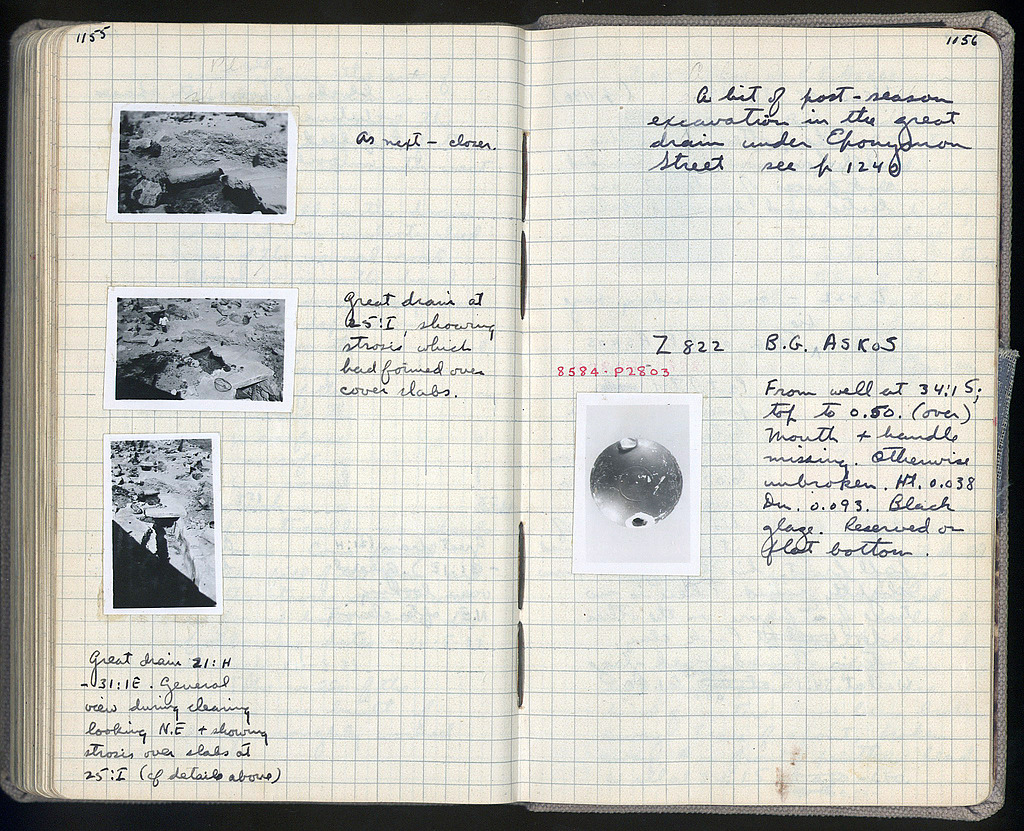 1155
As next – closer.
Great drain at
25:I, showing
strosis which
had formed over
cover slabs.
Great drain 21:H
– 31:IE. General
view during clearing
looking N.E + showing
strosis over slabs at
25:I (cf details above)
1156
A bit of post-season
excavation in the great
drain under Eponymon
Street see p 1240
Z 822 B.G. ASKOS
8584 · P2803
From well at 34:15;
top to 0.50. (over)
Mouth + handle
missing. Otherwise
unbroken. Ht. 0.038
Dm. 0.093. Black
glaze. Reserved on
flat bottom.